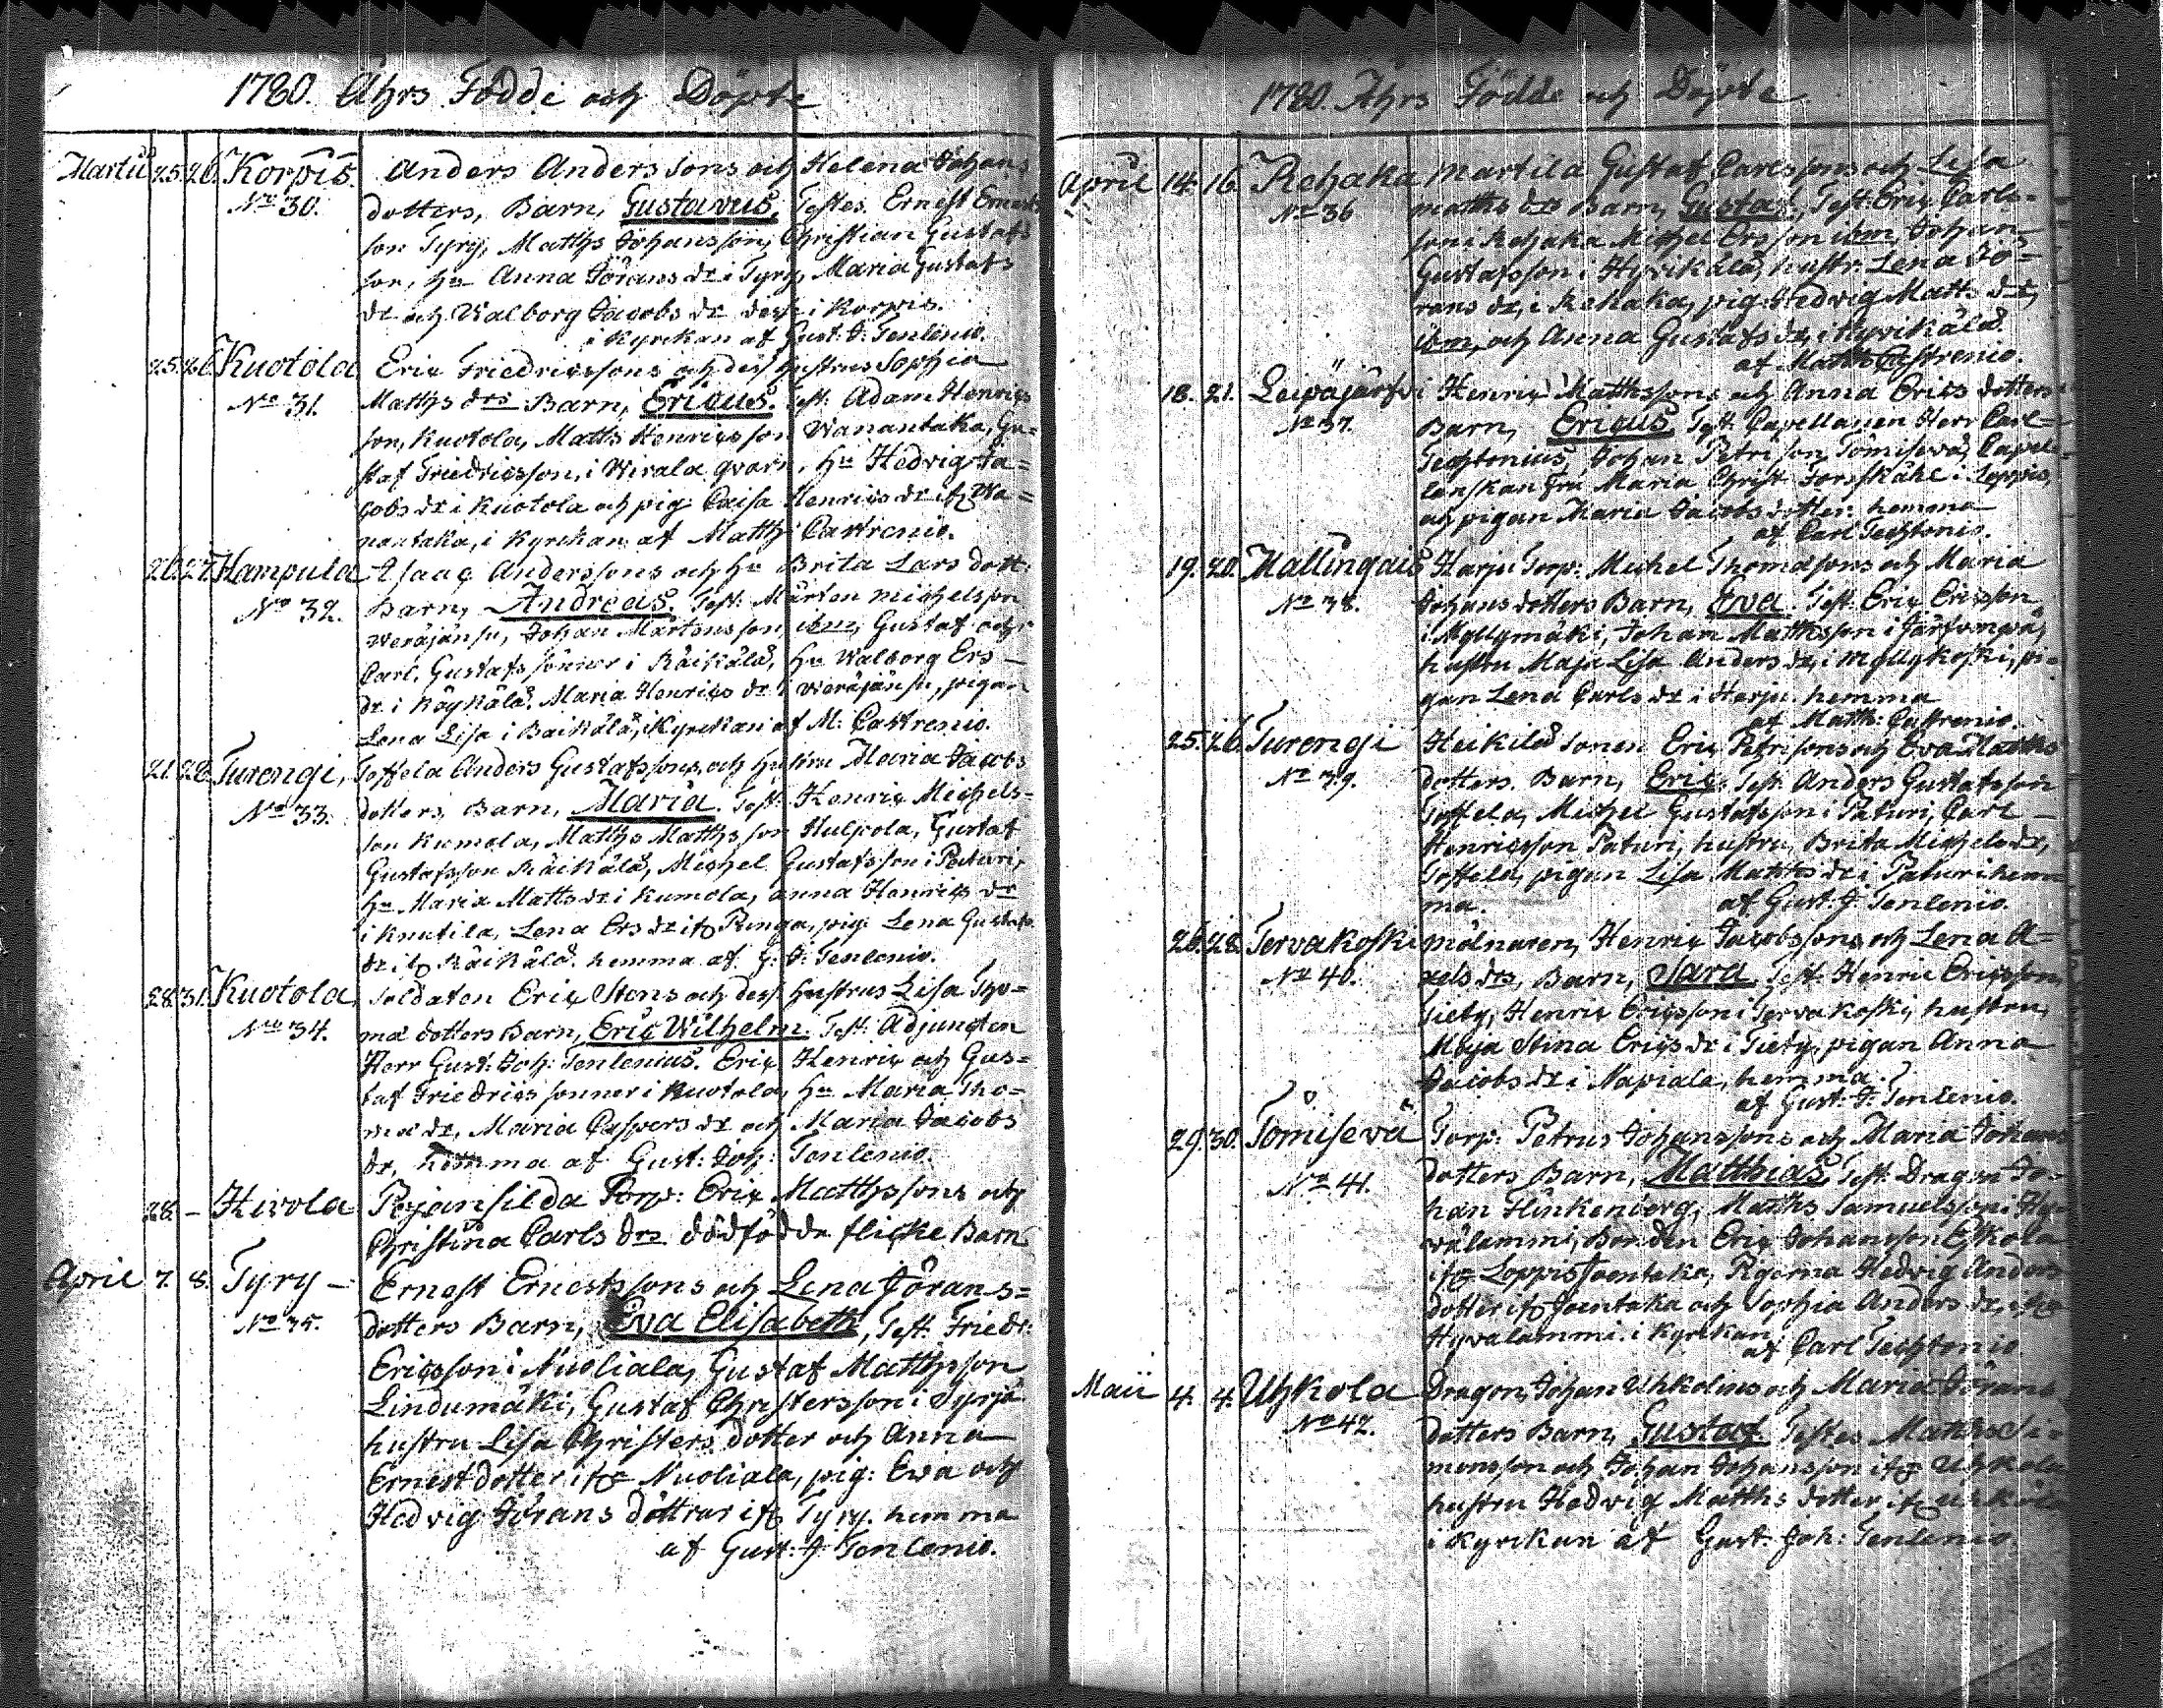 1780. Åhrs Födde och Döpte
Martii 25. 26. Korpis. Anders Anderssons och Helena Johans
No 30. dotters, Barn, Gustavus, Testes. Ernest Ernests
son Tyry, Matths Johansson, Christian Gustafs
son, hu Anna Jörans dr i Tyry, Maria Gustafs
dr och Walborg Jacobs dr dito i Korpis.
i Kyrckan af Gust. J. Tenlenio.
25. 26. Kuotola Eric Friedricssons och dess hustrus Sophia
No 31. Matths drs Barn, Ericus. Test: Adam Henrics
son, Kuotola, Matths Henricsson Wanantaka, Gu=
staf Friedricsson, i Wirala qvarn, hu Hedvig Ja=
cobs dr i Kuotola och pig. Caisa Henrics dr ifr Wa=
nantaka, i Kyrckan af Matth Castrenio.
26. 27. Hampula Isaac Anderssons och hu Brita Lars dott:
No 32. Barn, Andreas. Test: Mårten Michelsson
Weräjänsu, Johan Mårtensson, ibm, Gustaf och
Carl, Gustafs sönner i Räikälä, hu Walborg Ers
dr i Räykälä, Maria Henrics dr i Weräjänsu, pigan
Lena Lisa i Räikälä, i Kyrckan af M: Castrenio.
21. 28. Turengi, Toffela Anders Gustafssons och hustru Maria Jacobs
No 33. dotters, Barn, Maria. Test: Henric Michels=
son Kumola, Matths Matthsson Hulpola, Gustaf
Gustafsson Räikälä, Michel Gustafsson i Paturi,
hu Maria Matts dr i Kumola, Anna Henrics dr
i Knutila, Lena Ers dr ifr Punga, pig: Lena Gustafs
dr ifr Räikälä. hemma af G: J: Tenlenio.
28. 31. Kuotola Soldaten Eric Stens och dess hustrus Lisa Tho=
No 34. ma dotters Barn, Eric Wilhelm. Test: Adjuncten
Herr Gust: Joh: Tenlenius. Eric, Henric och Gus=
taf Friedrics sonner i Kuotola, hu Maria Tho=
ma dr, Maria Caspers dr och Maria Jacobs
dr, hemma af Gust: Joh: Tenlenio.
28. – Hirola Torp: Eric Matthssons och
Christina Carls drs dödfödde flicke Barn
April 7. 8. Tyry – Ernest Ernestssons och Lena Jörans=
No 35. dotters Barn, Eva Elisabeth, Test: Friedr:
Ericsson i Nuoliala, Gustaf Matthsson
Lindumäki, Gustaf Christersson i Syrjä
hustru Lisa Christers dotter och Anna
Ernest dotter ifr Nuoliala, pig: Ewa och
Hedvig Jörans döttrar ifr Tyry. hemma
af Gust: J Tenlenio.
1780. Åhrs Födde och Döpte
April 14. 16. Rehaka Martila Gustaf Carlssons och Lisa
No 36 Matths drs Barn, Gustaf, Test: Eric Carls=
son i Rehaka Michel Ersson ibm, Johan
Gustafsson i Hyvikälä, hustr: Lena Jö=
rans dr, i Rehaka, pig: Hedvig Matts dr,
ibm, och Anna Gustafs dr, i Hyvikälä.
af Matth Castrenio.
18. 21. Leipäjärfvi Henric Matthssons och Anna Erics dotters
No 37. Barn, Ericus Test: Capellanen Herr Carl
Techtonius, Johan Petrisson, Tomiseva, Capel
lanskan fru Maria Christ: Forsskåhl i Loppis,
och pigan Maria Jacobs dotter. hemma
af Carl Techtonio.
19. 20. Mallingais Harju Torp: Michel Thomassons och Maria
No 38. Johans dotters Barn, Eva. Test: Eric Ericsson
i Myllymäki, Johan Matthsson i
hustru Maja Lisa Anders dr, i Myllykoski, pi=
gan Lena Carls dr i Harju. hemma
af Matth: Castrenio.
25. 26. Turengi Heikilä sonen Eric Petrissons och Eva Matths
No 39. dotters. Barn, Eric. Test: Anders Gustafsson
Toffela, Michel Gustafsson i Paturi, Carl
Henricsson Paturi, hustru, Brita Michels dr,
Toffela, pigan Lisa Matths dr i Paturi hem
ma. af Gust: J: Tenlenio.
26. 28. Tervakoski mölnaren, Henric Jacobssons och Lena A=
No 40. xels drs, Barn, Sara. Test: Henric Ericsson
Siety, Henric Ericsson i Tervakoski, hustru,
Maja Stina Erics dr i Siety, pigan Anna
Jacobs dr i Napiala, hemma.
af Gust: J: Tenlenio.
29. 30. Tomiseva Torp: Petrus Johanssons och Maria Johans
No 41. dotters Barn, Matthias. Test: Dragon Jo=
han Flinkenberg, Matths Samuelsson i Hy=
välammi, Bonden Eric Johansson Eskola
ifr Loppis Joentaka, Pigorna Hedvig Anders
dotter ifr Joentaka och Sophia Anders dr, ifr
Hyvalammi. i Kyrckan
af Carl Techtonio
Maii 4. 4. Uhkola Dragon, Johan Uhkolins och Maria Jörans
No 42. dotters Barn, Gustaf. Testes Matths Si=
monsson och Johan Johansson ifr Uhkola
hustru Hedvig Matths dotter ifr Uhkola
i Kyrckan af Gust: Joh: Tenlenio.